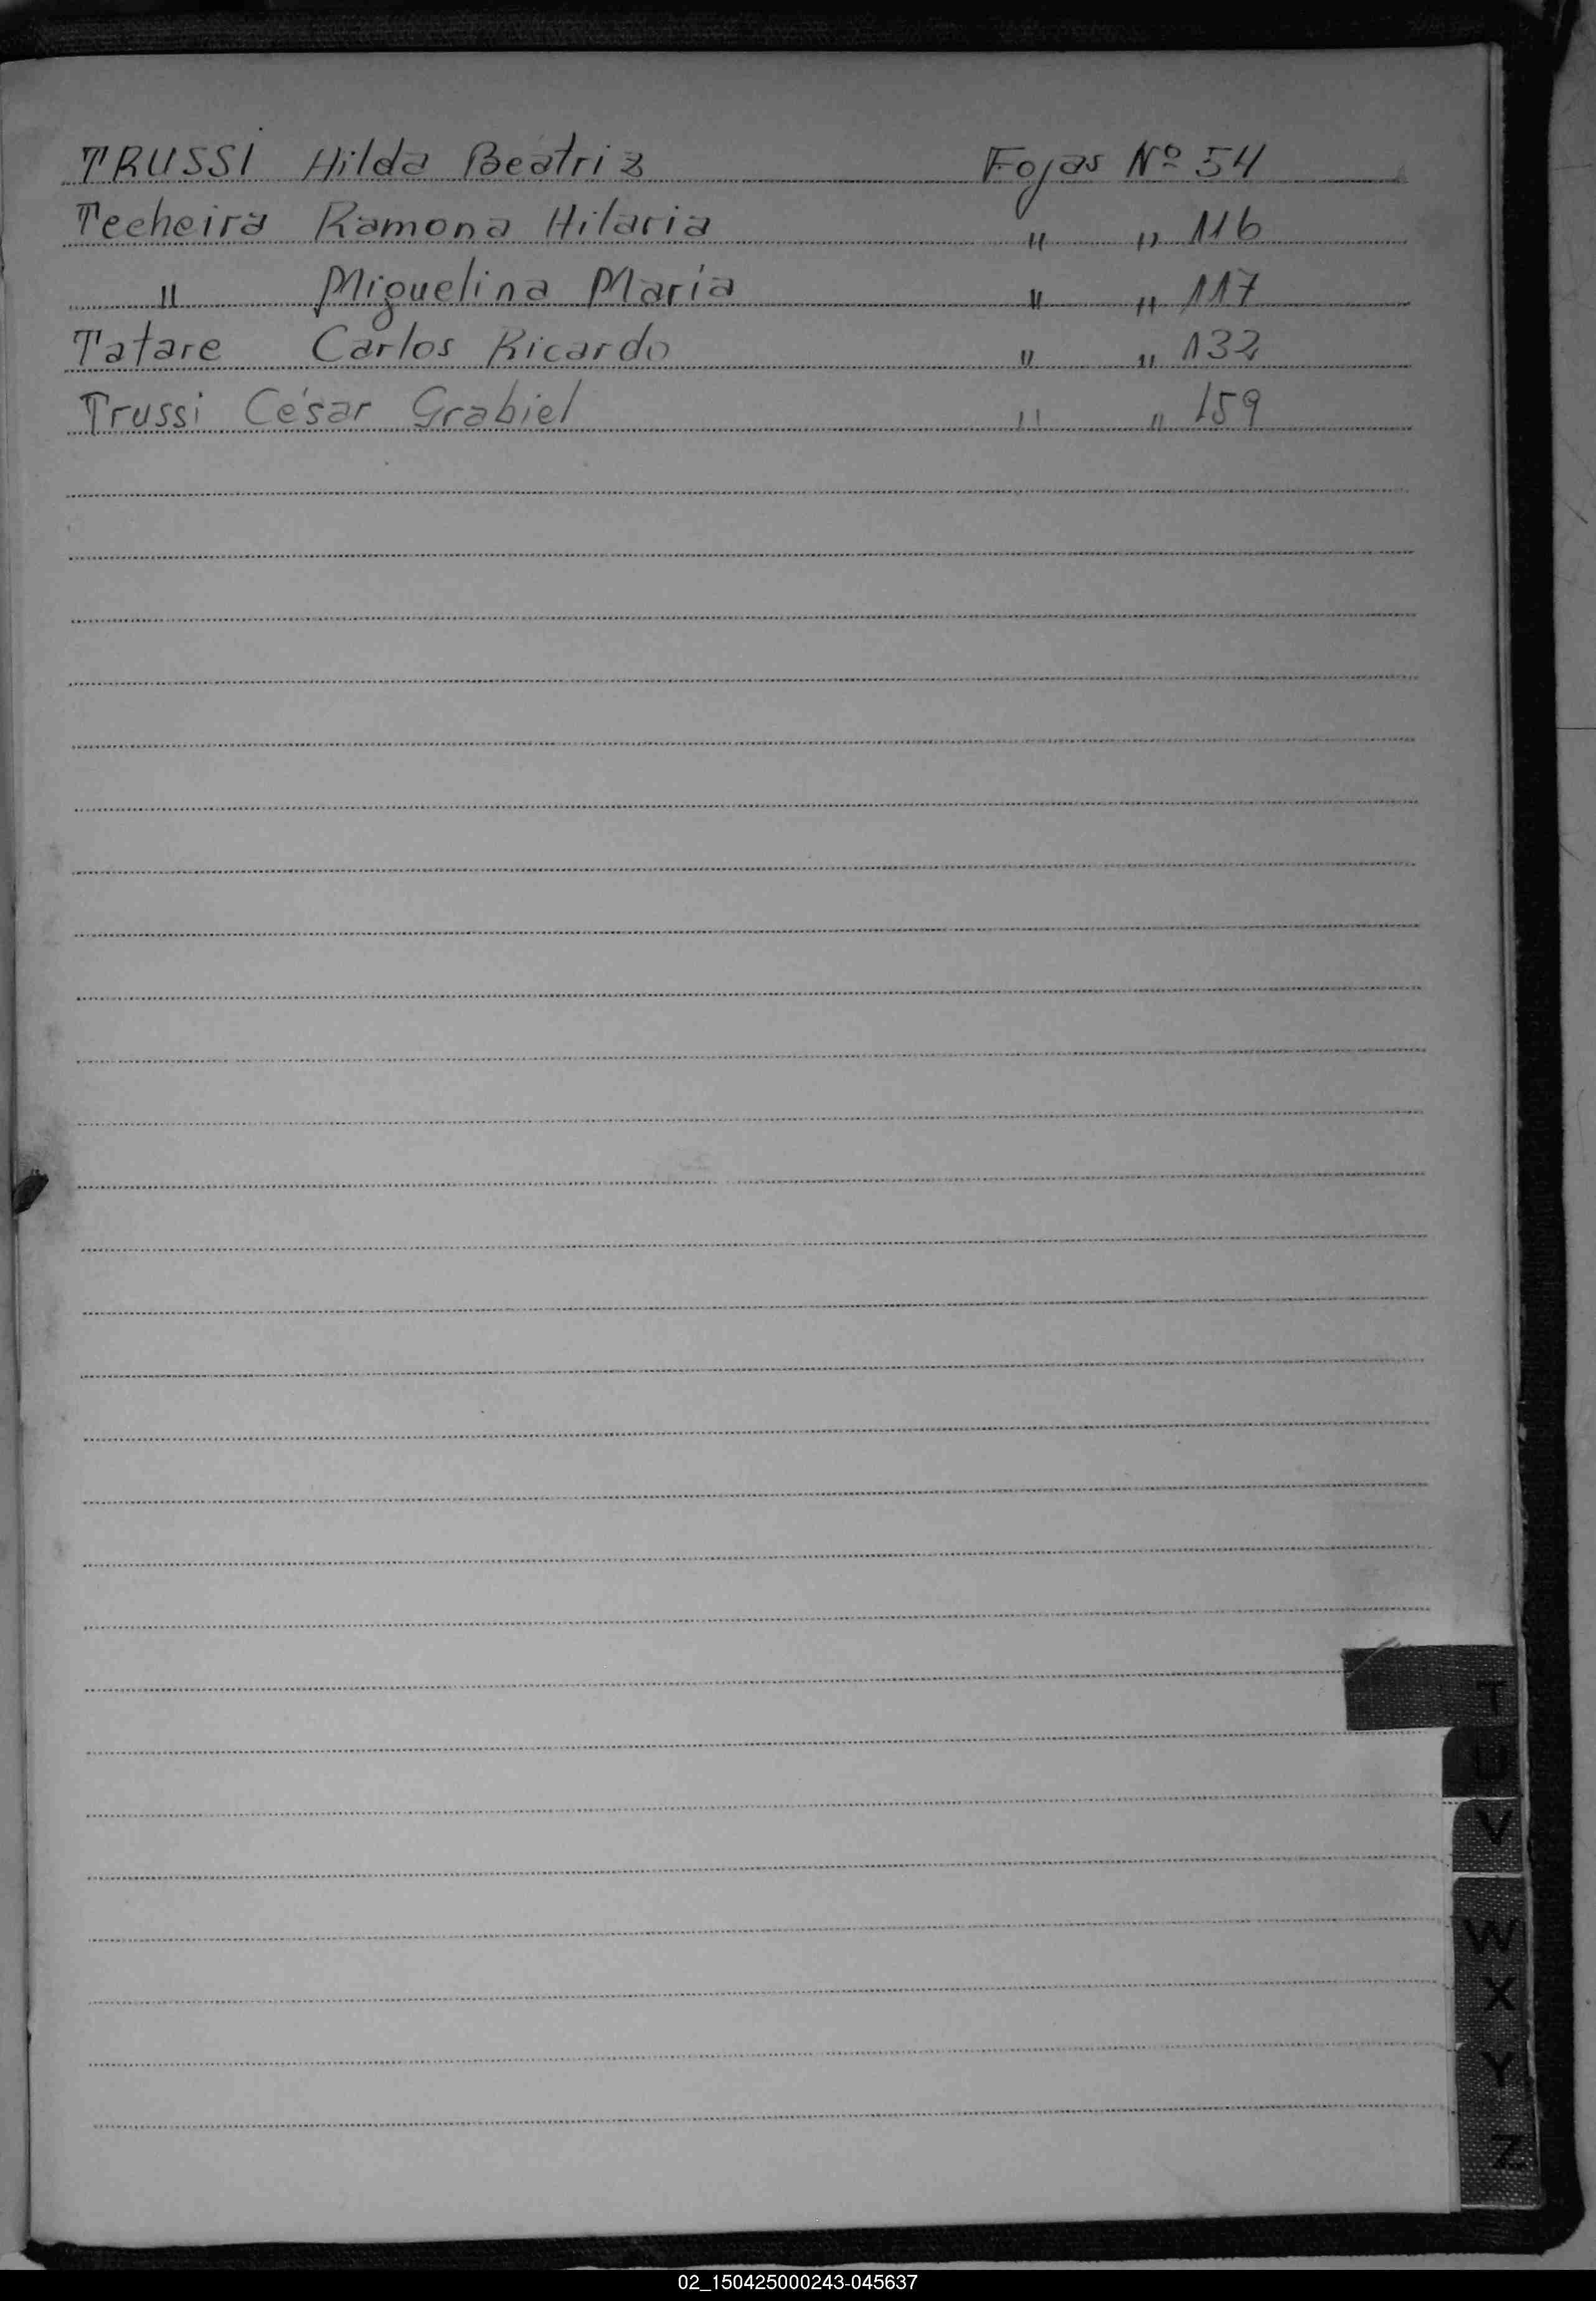 TRUSSI Hilda Beatriz Fojas Nº 54
Techeira Ramona Hilaria " " 116
" Miguelina María " " 117
Tatare Carlos Ricardo " " 132
Trussi César Grabiel " " 159
T
U
V
W
X
Y
Z
02_150425000243-045637